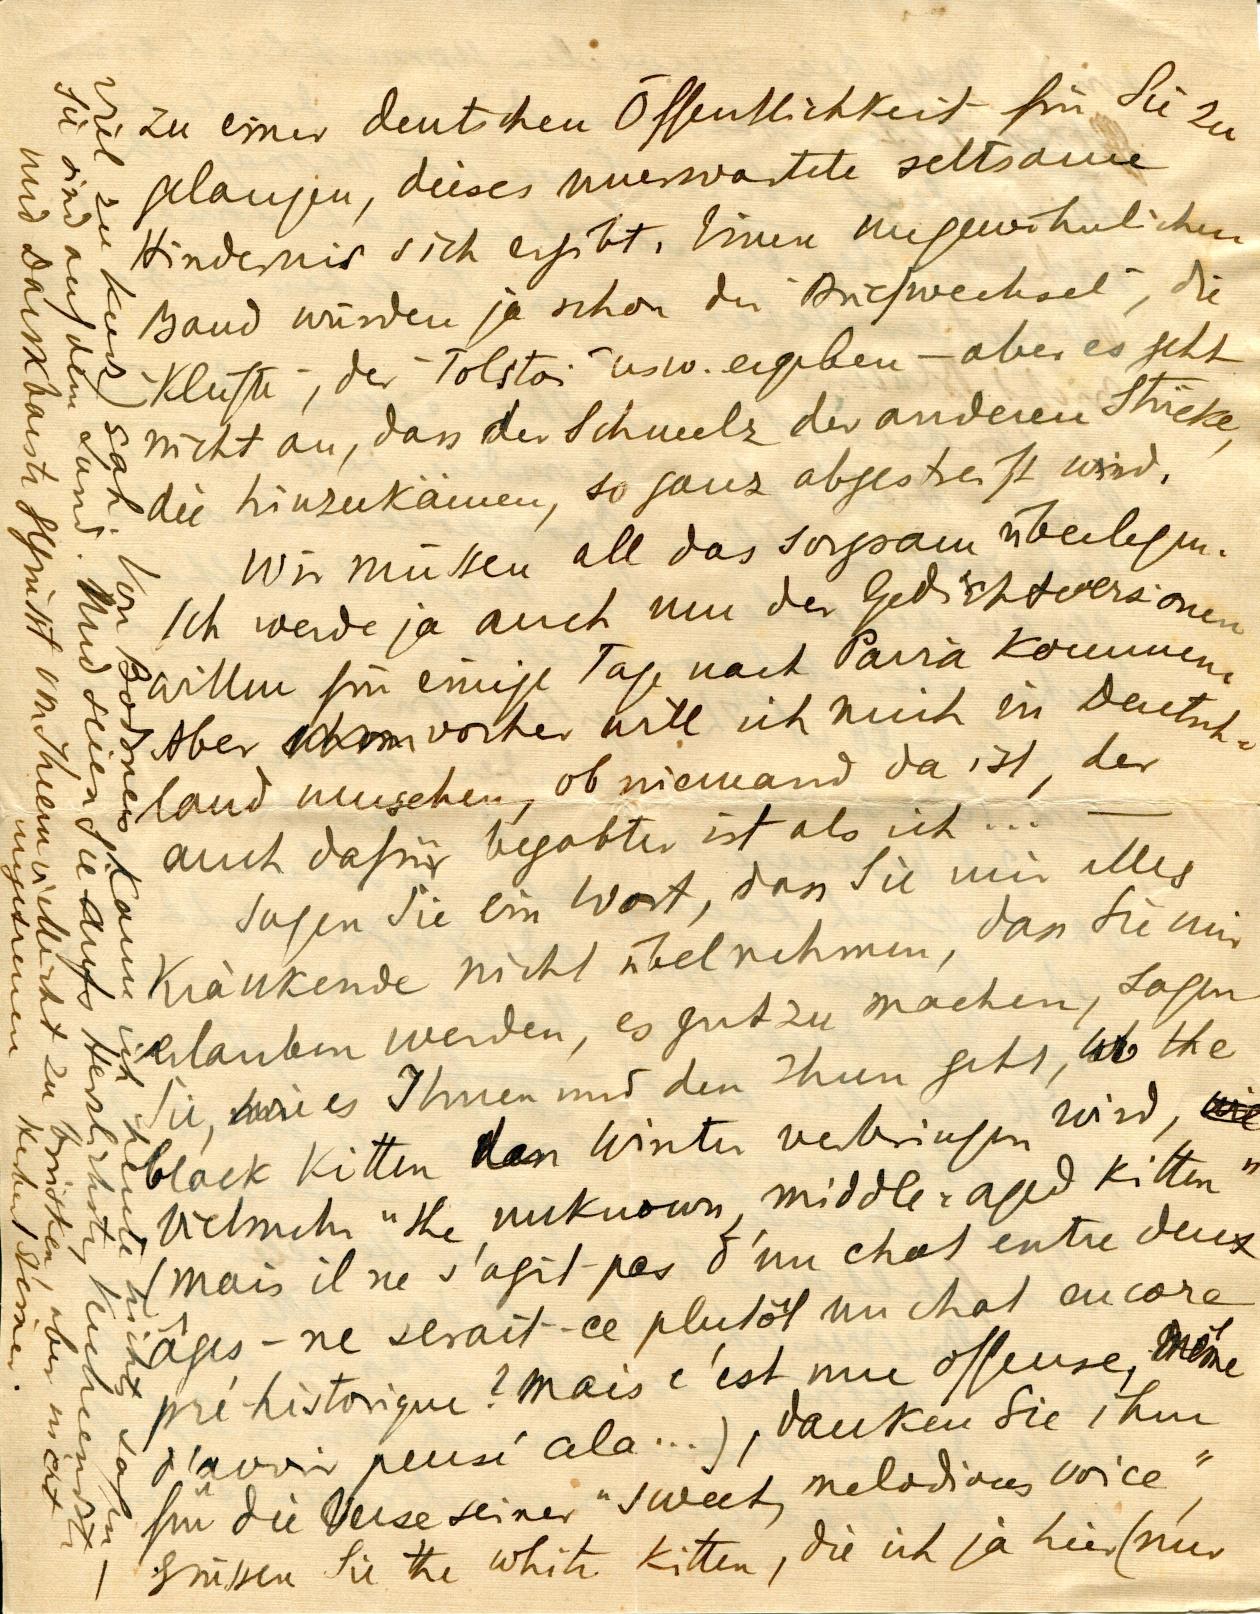 zu einer deutschen Öffentlichkeit für Sie zu
gelangen, dieses unerwartete seltsame
Hindernis sich ergibt. Einen ungewöhnlichen
Band würden ja schon der "Briefwechsel", die
"Klüfte", der "Tolstoi" usw. ergeben – aber es geht
nicht an, dass der Schmelz der anderen Stücke,
die hinzukämen, so ganz abgestreift wird.
Wir müssen all das sorgsam überlegen.
Ich werde ja auch um der Gedichtversionen
willen für einige Tage nach Pavia kommen.
Aber vorher will ich mich in Deutsch-
land umsehen, ob niemand da ist, der
auch dafür begabter ist als ich ... —
Sagen Sie ein Wort, dass Sie mir alles
Kränkende nicht übelnehmen, dass Sie mir
erlauben werden, es gut zu machen, sagen
Sie, wie es Ihnen und den Ihren geht, wo the
black Kitten den Winter verbringen wird,
vielmehr "the unknown, middle-aged Kitten"
(mais il ne s'agit pas d'un chat entre deux
âges – ne serait-ce plutôt un chat encore
pré-historique? Mais c'est une offense, même
d'avoir pensé cela ...), danken Sie ihm
für die Verse seiner "sweet, melodious voice",
grüssen Sie the white Kitten, die ich ja hier (nur
viel zu kurz) sah. Von Bodmers kann ich heute nichts sagen –
sie sind auf dem Land. Und seien Sie aufs Herzlichste,
und Dankbarste gegrüsst von Ihrem vielleicht zu kritischen, aber nicht
ungetreuen Herbert Steiner.